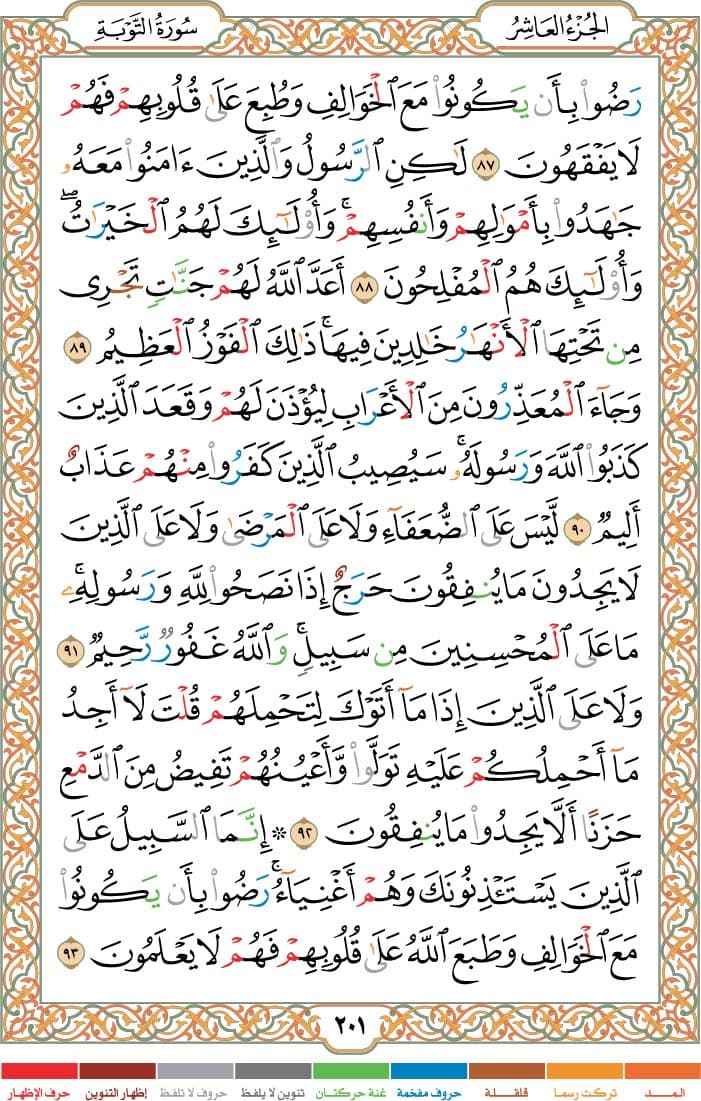 الجُزْءُ العَاشِرُ
سُورَةُ التَّوْبَةِ
رَضُوا۟ بِأَن يَكُونُوا۟ مَعَ ٱلْخَوَالِفِ وَطُبِعَ عَلَىٰ قُلُوبِهِمْ فَهُمْ
لَا يَفْقَهُونَ ٨٧ لَٰكِنِ ٱلرَّسُولُ وَٱلَّذِينَ ءَامَنُوا۟ مَعَهُۥ
جَٰهَدُوا۟ بِأَمْوَٰلِهِمْ وَأَنفُسِهِمْ ۚ وَأُو۟لَٰٓئِكَ لَهُمُ ٱلْخَيْرَٰتُ ۖ
وَأُو۟لَٰٓئِكَ هُمُ ٱلْمُفْلِحُونَ ٨٨ أَعَدَّ ٱللَّهُ لَهُمْ جَنَّٰتٍ تَجْرِى
مِن تَحْتِهَا ٱلْأَنْهَٰرُ خَٰلِدِينَ فِيهَا ۚ ذَٰلِكَ ٱلْفَوْزُ ٱلْعَظِيمُ ٨٩
وَجَآءَ ٱلْمُعَذِّرُونَ مِنَ ٱلْأَعْرَابِ لِيُؤْذَنَ لَهُمْ وَقَعَدَ ٱلَّذِينَ
كَذَبُوا۟ ٱللَّهَ وَرَسُولَهُۥ ۚ سَيُصِيبُ ٱلَّذِينَ كَفَرُوا۟ مِنْهُمْ عَذَابٌ
أَلِيمٌ ٩٠ لَّيْسَ عَلَى ٱلضُّعَفَآءِ وَلَا عَلَى ٱلْمَرْضَىٰ وَلَا عَلَى ٱلَّذِينَ
لَا يَجِدُونَ مَا يُنفِقُونَ حَرَجٌ إِذَا نَصَحُوا۟ لِلَّهِ وَرَسُولِهِۦ ۚ
مَا عَلَى ٱلْمُحْسِنِينَ مِن سَبِيلٍ ۚ وَٱللَّهُ غَفُورٌ رَّحِيمٌ ٩١
وَلَا عَلَى ٱلَّذِينَ إِذَا مَآ أَتَوْكَ لِتَحْمِلَهُمْ قُلْتَ لَآ أَجِدُ
مَآ أَحْمِلُكُمْ عَلَيْهِ تَوَلَّوا۟ وَّأَعْيُنُهُمْ تَفِيضُ مِنَ ٱلدَّمْعِ
حَزَنًا أَلَّا يَجِدُوا۟ مَا يُنفِقُونَ ٩٢ ۞ إِنَّمَا ٱلسَّبِيلُ عَلَى
ٱلَّذِينَ يَسْتَـْٔذِنُونَكَ وَهُمْ أَغْنِيَآءُ ۚ رَضُوا۟ بِأَن يَكُونُوا۟
مَعَ ٱلْخَوَالِفِ وَطَبَعَ ٱللَّهُ عَلَىٰ قُلُوبِهِمْ فَهُمْ لَا يَعْلَمُونَ ٩٣
٢٠١
المـــد
تركت رسما
قلقـلـة
حروف مفخمة
غنة حركتـان
تنوين لا يلفظ
حروف لا تلفظ
إظهار التنوين
حرف الإظهار